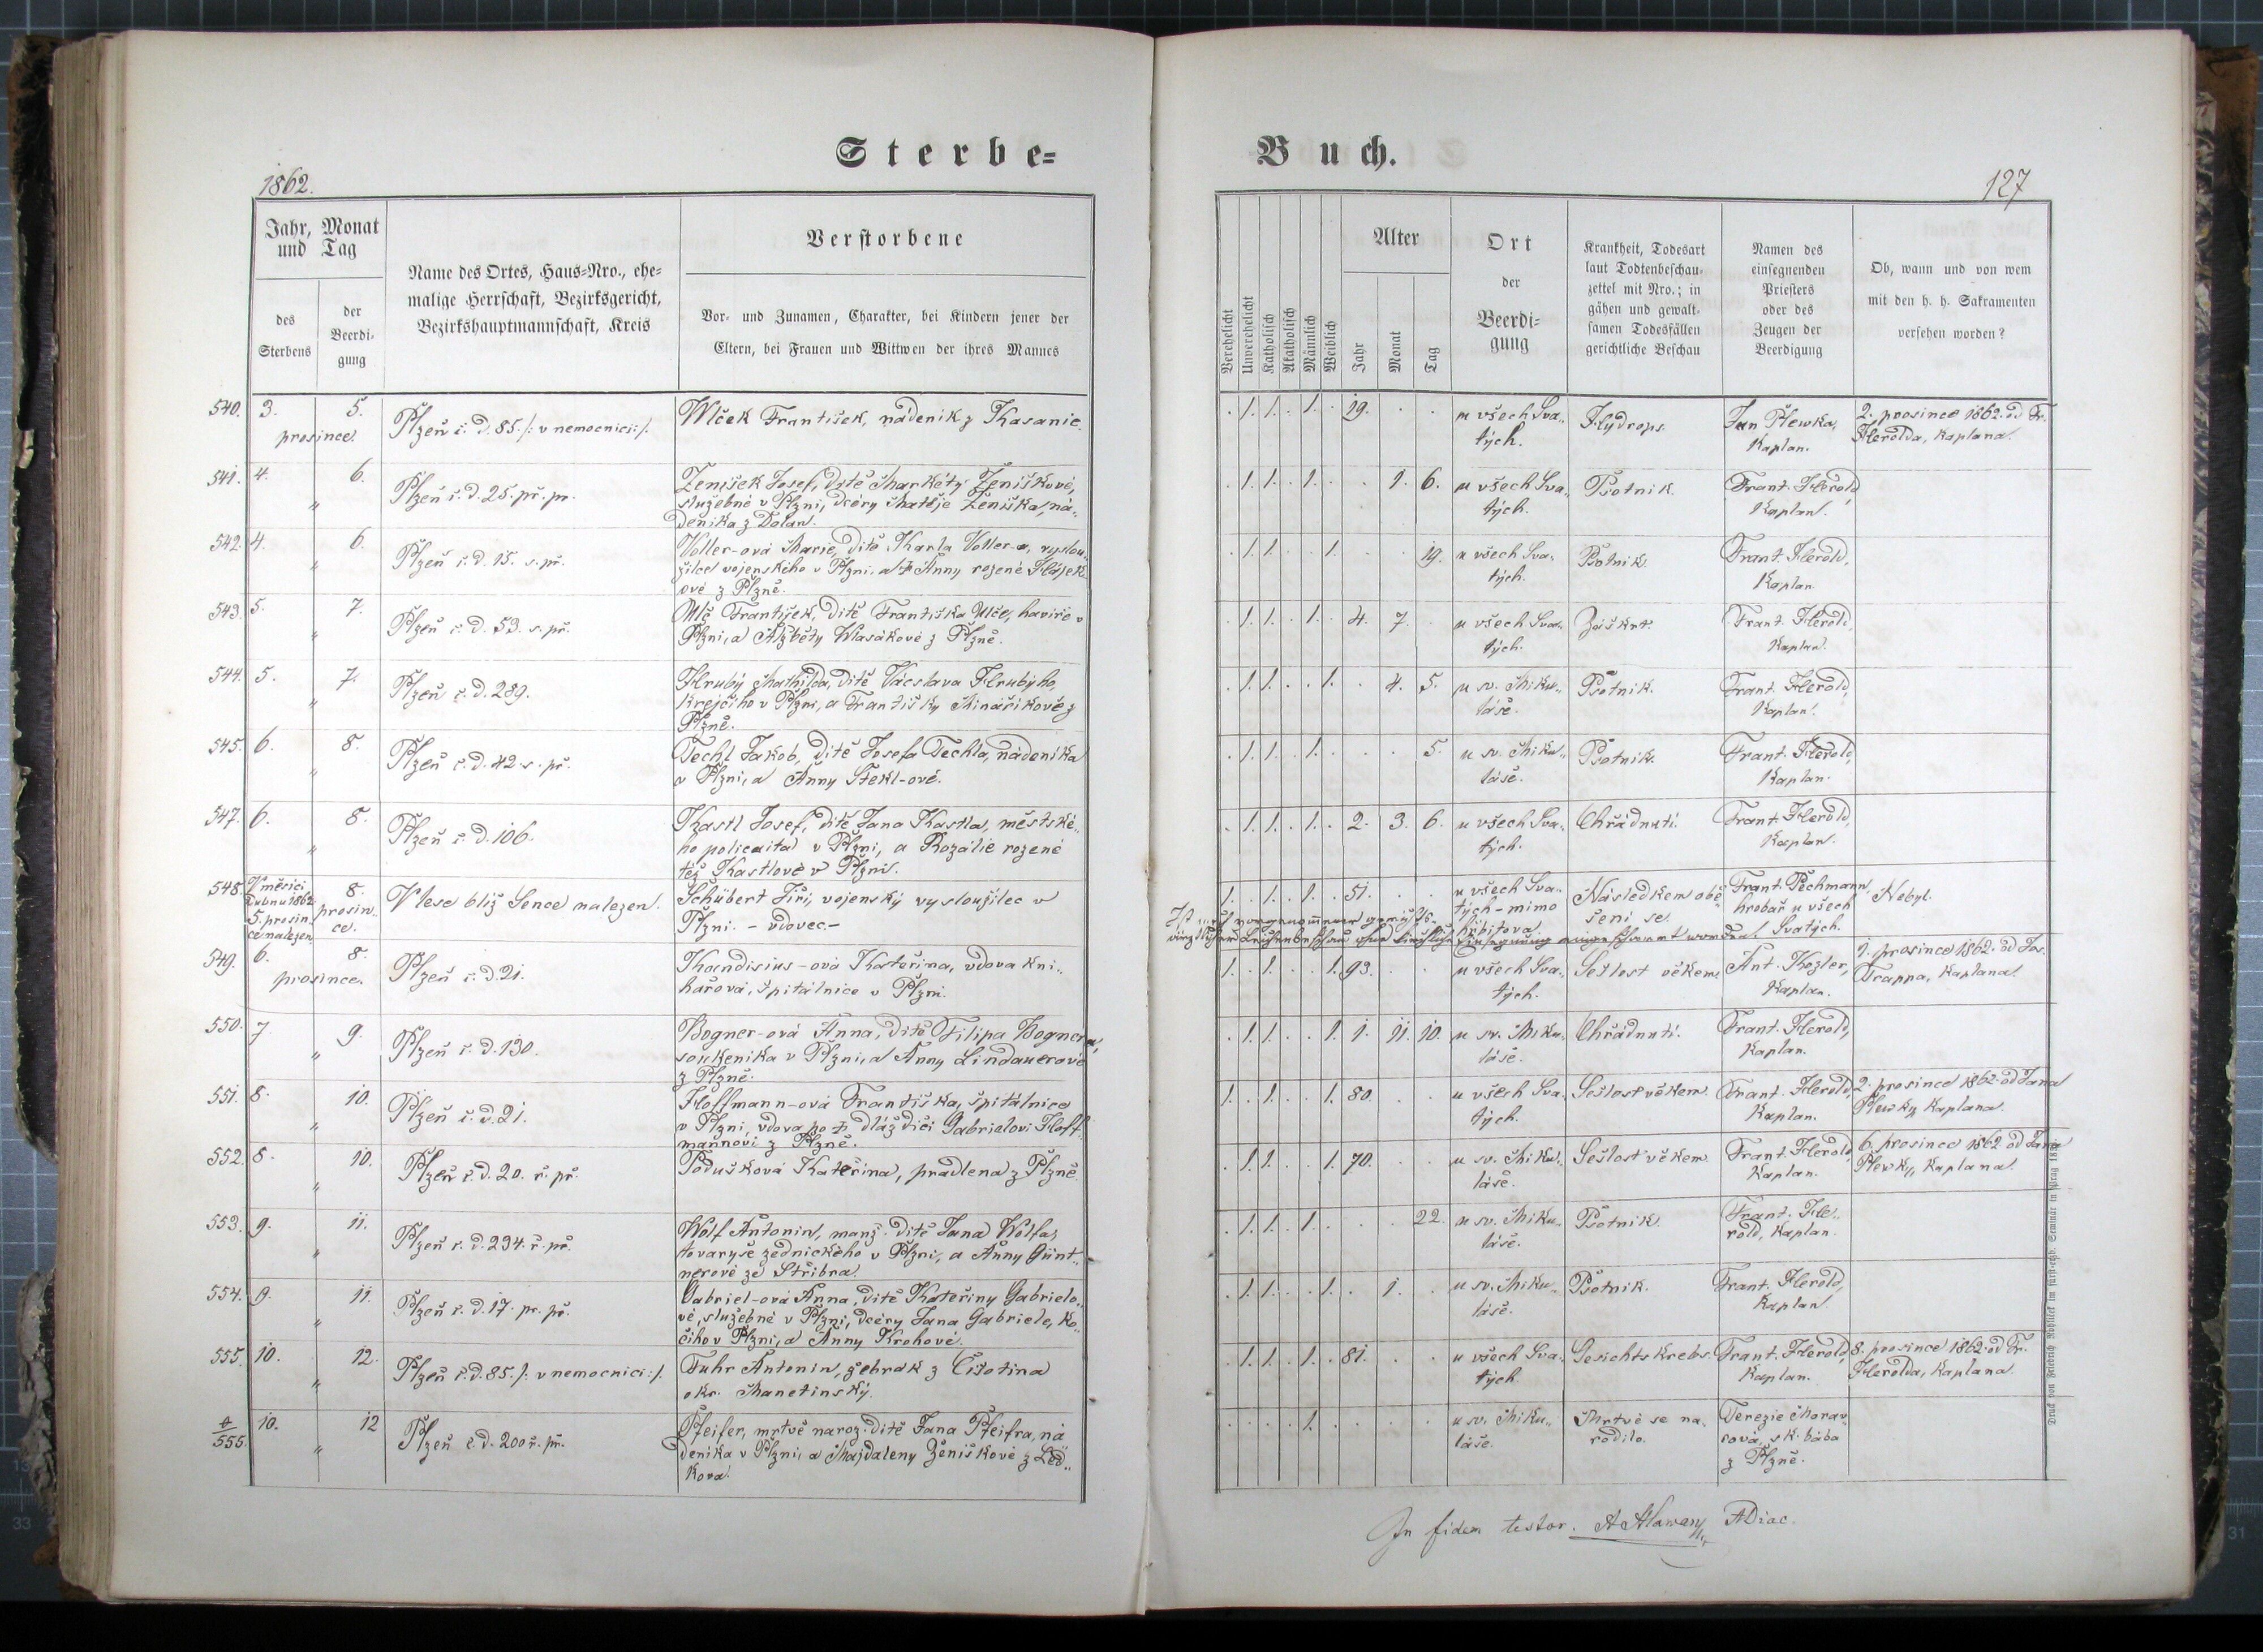 Sterbe=
Buch.
1862.
127
Jahr, Monat
und Tag
des
Sterbens
der
Beerdi-
gung
Name des Ortes, Haus=Nro., ehe=
malige Herrschaft, Bezirksgericht,
Bezirkshauptmannschaft, Kreis
Verstorbene
Vor- und Zunamen, Charakter, bei Kindern jener der
Eltern, bei Frauen und Wittwen der ihres Mannes
Verehelicht
Unverehelicht
Katholisch
Akatholisch
Männlich
Weiblich
Alter
Jahr
Monat
Tag
Ort
der
Beerdi=
gung
Krankheit, Todesart
laut Todtenbeschau-
zettel mit Nro.; in
gähen und gewalt-
samen Todesfällen
gerichtliche Beschau
Namen des
einsegnenden
Priesters
oder des
Zeugen der
Beerdigung
Ob, wann und von wem
mit den h. h. Sakramenten
versehen worden?
540. 3. 5. Plzeň č. d. 85. /: v nemocnici :/. Wlček František, nádeník z Kasanic.
prosince.
. 1. 1. . 1. . 19. . . u všech Sva- Hydrops. Jan Plewka, 2. prosince 1862. od Fr.
tých. Kaplan. Herolda, kaplana.
541. 4. 6. Plzeň č. d. 25. př. pr. Ženíšek Josef, dítě Markéty Ženíškové,
„ služebné v Plzni, dcéry Matěje Ženíška, ná-
deníka z Dolan.
. 1. 1. . 1. . . 1. 6. u všech Sva- Psotník. Frant. Herold,
tých. Kaplan.
542. 4. 6. Plzeň č. d. 15. s. př. Voller-ová Marie, dítě Karla Voller-a, vyslou-
„ žilce vojenského v Plzni, a Anny rozené Hájek-
ové z Plzně.
. 1. 1. . . 1. . . 19. u všech Sva- Psotník. Frant. Herold,
tých. Kaplan.
543. 5. 7. Plzeň č. d. 53. s. př. Ulč František, dítě Františka Ulče, havíře v
„ Plzni, a Alžběty Wlasákové z Plzně.
. 1. 1. . 1. . 4. 7. . u všech Sva- Záškrt. Frant. Herold,
tých. Kaplan.
544. 5. 7. Plzeň č. d. 289. Hrubý Mathilda, dítě Václava Hrubýho,
„ krejčího v Plzni, a Františky Minaříkové z
Plzně.
. 1. 1. . . 1. . 4. 5. u sv. Miku- Psotník. Frant. Herold,
láše. Kaplan.
545. 6. 8. Plzeň č. d. 42. s. př. Techl Jakob, dítě Josefa Techla, nádeníka
„ v Plzni, a Anny Stekl-ové.
. 1. 1. . 1. . . . 5. u sv. Miku- Psotník. Frant. Herold,
láše. Kaplan.
547. 6. 8. Plzeň č. d. 106. Kastl Josef, dítě Jana Kastla, městské-
„ ho policaita v Plzni, a Rozálie rozené
též Kastlové v Plzni.
. 1. 1. . 1. . 2. 3. 6. u všech Sva- Chřádnutí. Frant. Herold,
tých. Kaplan.
548. V měsíci 8. V lese blíž Sence nalezen. Schübert Jiří, vojenský vysloužilec v
Dubnu 1862 prosin- Plzni. - vdovec. -
5. prosin- ce.
ce nalezen.
1. . 1. . 1. . 51. . . u všech Sva- Následkem obě- Frant. Pechmann, Nebyl.
tých - mimo šení se. hrobař u všech
hřbitova. Svatých.
549. 6. 8. Plzeň č. d. 21. Kandisius-ová Kateřina, vdova kni-
prosince. hařová, špitálnice v Plzni.
1. . 1. . . 1. 93. . . u všech Sva- Sešlost věkem. Ant. Kozler, 1. prosince 1862. od Jos.
tých. Kaplan. Trappa, Kaplana.
550. 7 9. Plzeň č. d. 130. Bogner-ová Anna, dítě Filipa Bognera,
„ soukeníka v Plzni, a Anny Lindauerové
z Plzně.
. 1. 1. . . 1. 1. 11. 10. u sv. Miku- Chřádnutí. Frant. Herold,
láše. Kaplan.
551. 8. 10. Plzeň č. d. 21. Hoffmann-ová Františka, špitálnice
„ v Plzni, vdova po † dláždiči Gabrielovi Hoff-
mannovi z Plzně.
1. . 1. . . 1. 80. . . u všech Sva- Sešlost věkem. Frant. Herold, 2. prosince 1862. od Jana
tých. Kaplan. Plewky, Kaplana.
552. 8. 10. Plzeň č. d. 20. ř. př. Podušková Kateřina, pradlena z Plzně.
„
. 1. 1. . . 1. 70. . . u sv. Miku- Sešlost věkem. Frant. Herold, 6. prosince 1862. od Jana
láše. Kaplan. Plewky, Kaplana.
553. 9. 11. Plzeň č. d. 234. ř. př. Wolf Antonín, manž. dítě Jana Wolfa,
„ tovaryše zednického v Plzni, a Anny Günt-
nerové ze Stříbra.
. 1. 1. . 1. . . . 22. u sv. Miku- Psotník. Frant. He-
láše. rold, Kaplan.
554. 9. 11. Plzeň č. d. 17. pr. př. Gabriel-ová Anna, dítě Kateřiny Gabrielo-
„ vé, služebné v Plzni, dcéry Jana Gabriele, ko-
čího v Plzni, a Anny Krohové.
. 1. 1. . . 1. . 1. . u sv. Miku- Psotník. Frant. Herold,
láše. Kaplan.
555. 10. 12. Plzeň č. d. 85. /: v nemocnici :/. Fuhr Antonín, žebrák z Čišotina
„ okr. Manetinský.
. 1. 1. . 1. . 81. . . u všech Sva- Gesichtskrebs. Frant. Herold, 8. prosince 1862. od Fr.
tých. Kaplan. Herolda, Kaplana.
555. 10. 12 Plzeň č. d. 200 ř. př. Pfeifer, mrtvě naroz. dítě Jana Pfeifra, ná
„ deníka v Plzni, a Majdaleny Ženíškové z Led-
kova.
. . . . 1. . . . . u sv. Miku- Mrtvé se na- Terezie Morav-
láše. rodilo. cová, zk. bába
z Plzně.
In fidem testor. ADiac.